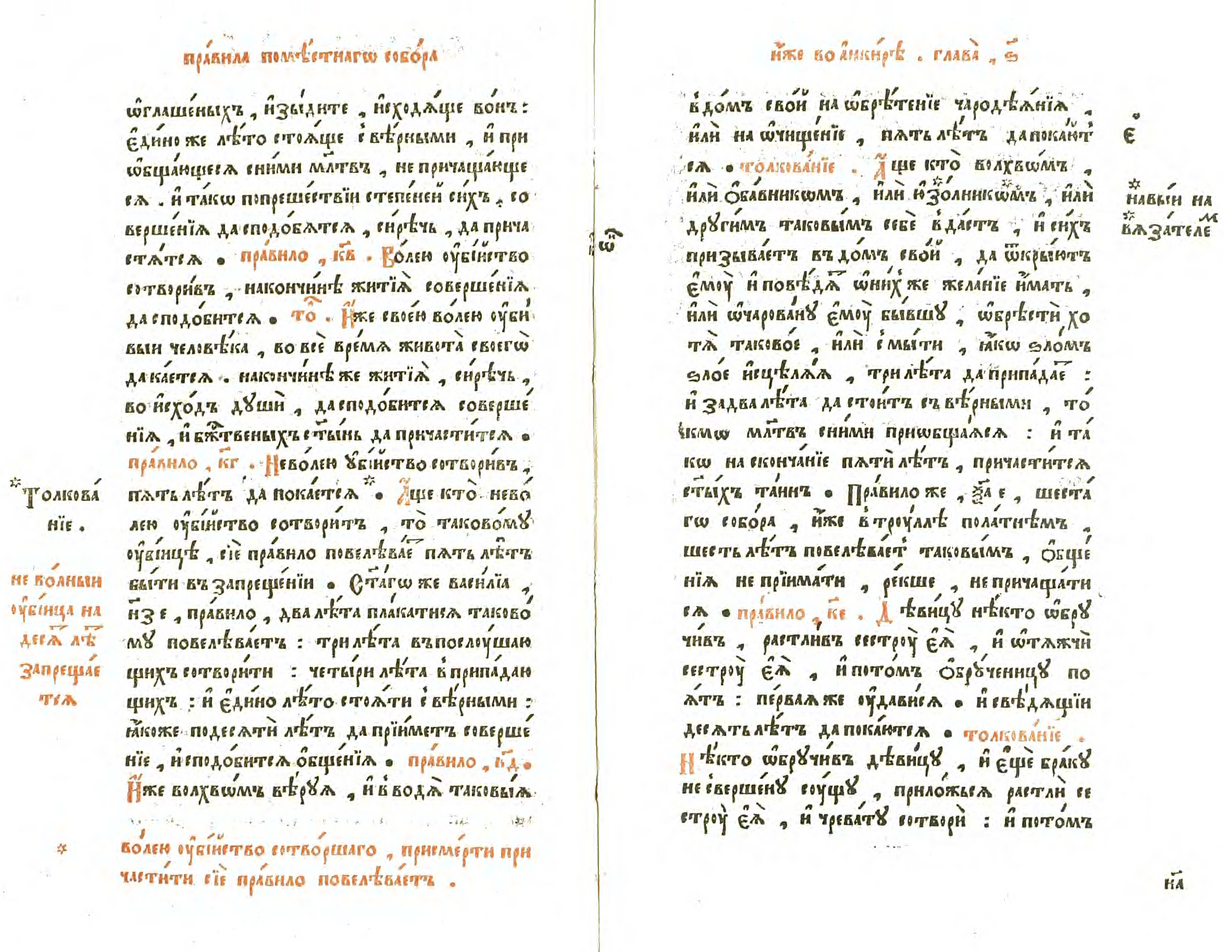 пра́вила помѣ́стнагѡ собо́ра
ѡ҆глаше́ныхъ , и҆зы́дите , и҆сходѧ́ще во́нъ :
є҆ди́но же лѣ́то стоѧ́ще с вѣ́рными , и҆ при
ѡ҆бща́ющесѧ сни́ми мл҃твѣ , не прича́щающе
сѧ . и҆ та́кѡ попреше́ствїи степе́ней си́хъ , со
верше́нїѧ да сподо́бѧтсѧ , си́рѣчь , да прича
стѧ́тсѧ . пра́вило , к҃в . Во́лею оу҆бі́йство
сотвори́въ , накончи́нѣ житїѧ̀ соверше́нїѧ
да сподо́битсѧ . то̑ . И҆́же свое́ю во́лею оу҆би́
выи человѣ́ка , во всѐ вре́мѧ живота̀ своегѡ̀
да ка́етсѧ . накончи́нѣ же житїѧ̀ , си́рѣчь ,
во и҆схо́дъ дꙋшѝ , да сподо́битсѧ соверше́
нїѧ , и҆ бж҃твеныхъ ст҃ы́нь да причасти́тсѧ .
пра́вило , к҃г . Нево́лею ᲂу҆бі́йство сотвори́въ ,
пѧ́ть лѣ́тъ да пока́етсѧ * . А҆́ще кто̀ нево́
лею оу҆бі́йство сотвори́тъ , то̀ таково́мꙋ
оу҆бі́йцѣ , сїѐ пра́вило повелѣва́е пѧ́ть лѣ́тъ
бы́ти въ запреще́нїи . Ст҃а́гѡ же васи́лїа ,
н҃з е , пра́вило , два лѣ́та пла́катисѧ таково́
мꙋ повелѣва́етъ : три лѣ́та въ послꙋ́шаю
щихъ сотвори́ти : четы́ри лѣ́та в припа́даю
щихъ : и҆ є҆ди́но лѣ́то стоѧ́ти с вѣ́рными :
ꙗ҆́коже по десѧ́ти лѣ́тъ да прїи́метъ соверше́
нїе , и҆ сподо́битсѧ ѻ҆бще́нїѧ . пра́вило , к҃д .
И҆́же волхвѡ́мъ вѣ́рꙋѧ , и҆ в водѧ̀ таковы́ѧ
* Толкова́
нїе .
не во́лныи
оу҆бі́йца на
десѧ лѣ
запреща́е
тсѧ
* во́лею оу҆бі́йство сотво́ршаго , присме́рти при
части́ти сїѐ пра́вило повелѣва́етъ .
и҆́же во а҆нки́рѣ . глава̀ , ѕ҃
в до́мъ сво́й на ѡ҆брѣ́тенїе чародѣѧ́нїѧ ,
и҆лѝ на ѡ҆чище́нїе , пѧ́ть лѣ́тъ да пока́ют
сѧ . толкова́нїе . А҆́ще кто̀ волхвѡ́мъ ,
и҆лѝ ѻ҆ба́вникѡмъ , и҆лѝ * и҆зо́лникѡмъ , и҆лѝ
* дрꙋги́мъ таковы́мъ себѐ в да́стъ , и҆ си́хъ
призыва́етъ въ до́мъ сво́й , да ѿкры́ютъ
є҆мꙋ̀ и҆ повѣ́дѧ ѡ҆ни́х же жела́нїе и҆́мать ,
и҆лѝ ѡ҆чаро́ванꙋ є҆мꙋ̀ бы́вшꙋ , ѡ҆брѣстѝ хо
тѧ̀ таково́е , и҆лѝ с мы́ти , ꙗ҆́кѡ ѕло́мъ
ѕло́е и҆сцѣлѧ́ѧ , три лѣ́та да припа́дае :
и҆ за два лѣ́та да стои́тъ съ вѣ́рными , то́
кмѡ мл҃твѣ сни́ми приѡбща́ѧсѧ : и҆ та́
кѡ на сконча́нїе пѧтѝ лѣ́тъ , причасти́тсѧ
ст҃ы́хъ та́инъ . Пра́вило же , ѯ҃а е , шеста́
гѡ собо́ра , и҆́же в трꙋ́ллѣ пола́тнѣмъ ,
ше́сть лѣ́тъ повелѣва́етъ таковы́мъ , ѻ҆бще́
нїѧ не прїима́ти , ре́кше , не причаща́ти
сѧ . пра́вило , к҃е . Дѣви́цꙋ нѣ́кто ѡ҆брꙋ
чи́въ , растли́въ сестрꙋ̀ є҆ѧ̀ , и҆ ѡ҆тѧжчѝ
сестрꙋ̀ є҆ѧ̀ , и҆ пото́мъ ѻ҆брꙋ́ченицꙋ по
ѧ́тъ : пе́рваѧ же оу҆дави́сѧ . и҆ свѣ́дѧщїи
де́сѧть лѣ́тъ да пока́ютсѧ . толкова́нїе .
Нѣ́кто ѡ҆брꙋчи́въ дѣви́цꙋ , и҆ є҆щѐ бра́кꙋ
не сверше́нꙋ сꙋ́щꙋ , приложьсѧ растлѝ се
стрꙋ̀ є҆ѧ̀ , и҆ чрева́тꙋ сотворѝ : и҆ пото́мъ
є҃
* на́выи на
* вѧ́зателе м
н҃а